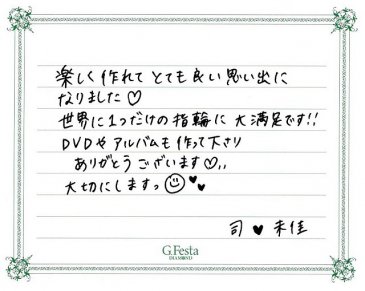 楽しく作れて とても良い思い出に
なりました♡
世界に1つだけの指輪に 大満足です!!
DVDや アルバムも作って下さり
ありがとうございます♡,,
大切にしますっ☺♥♥
司 ♥ 未佳
G.Festa
DIAMOND